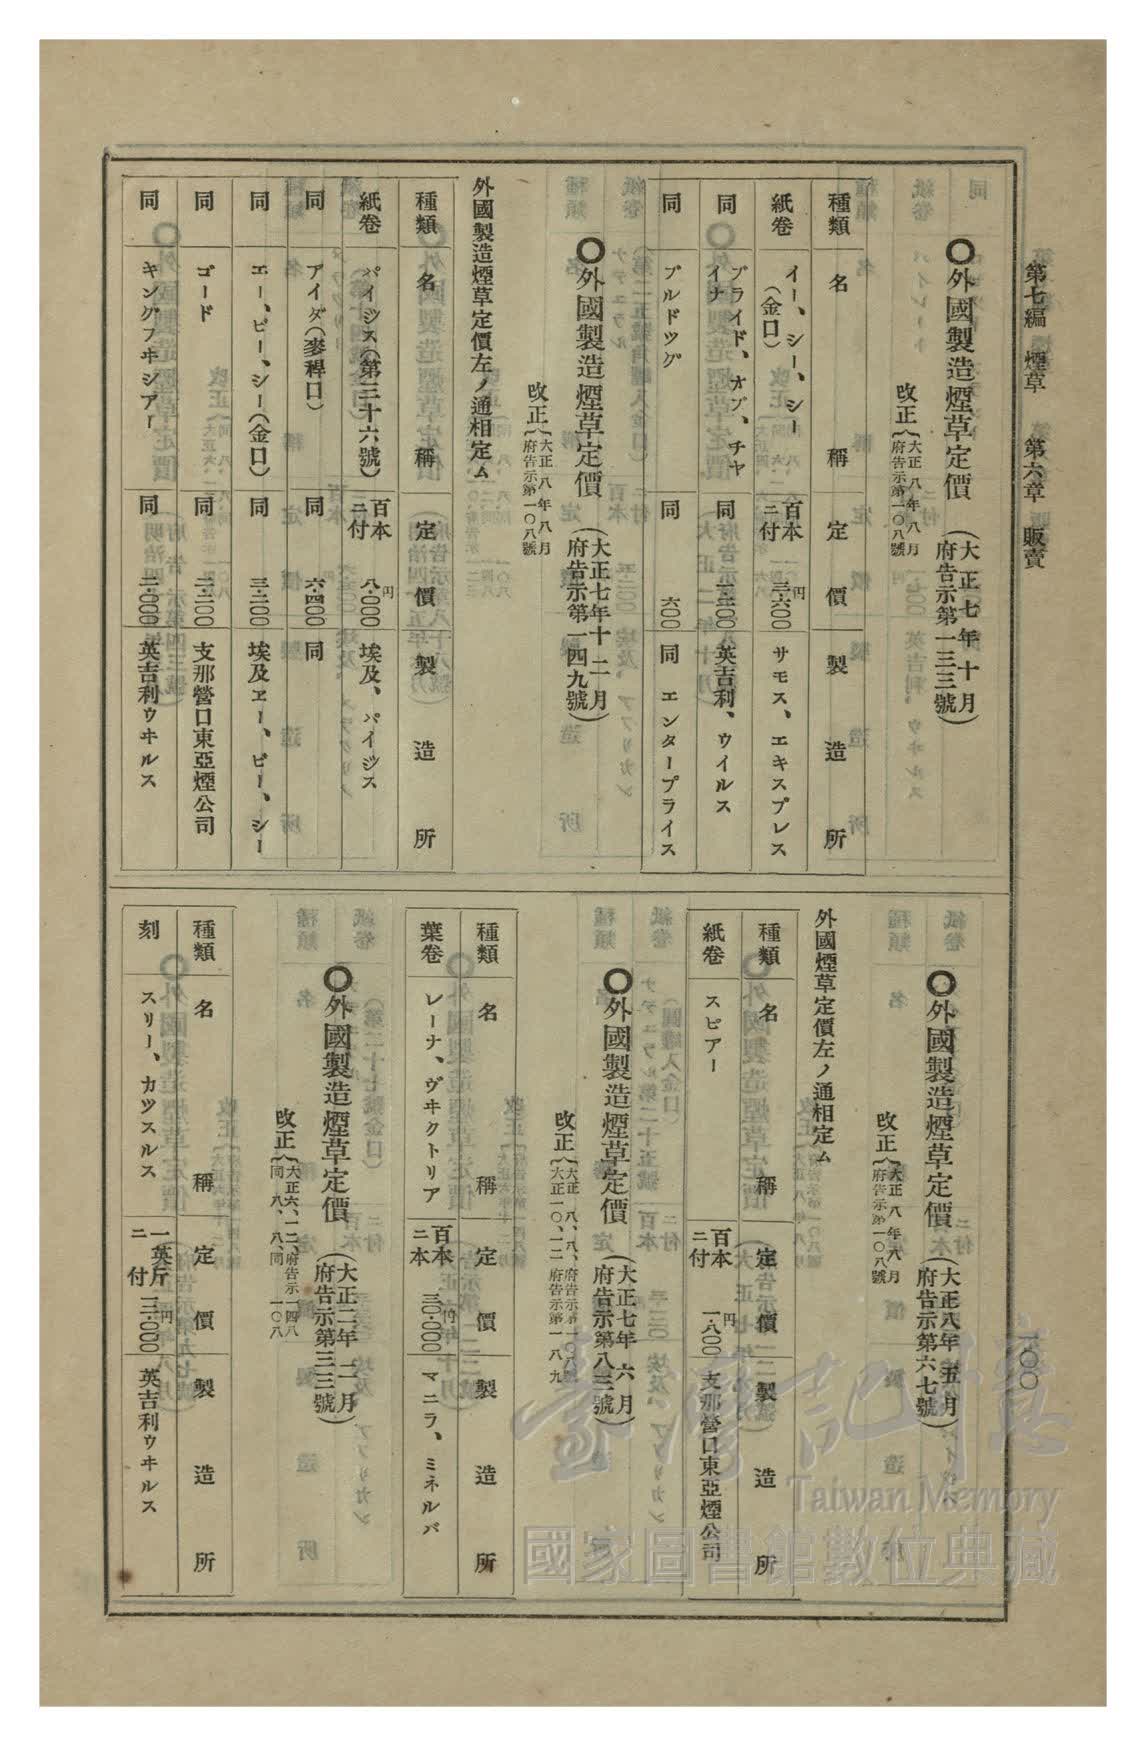 第七編 煙草 第六章 販賣
一〇〇
〇外國製造煙草定價(大正七年十月府告示第一三三號)
改正(大正八年八月府告示第一〇八號)
種類 名稱 定價 製造所
紙卷 イー、シー、シー(金口) 百本ニ付 三・六〇〇円 サモス、エキスプレス
同 プライド、オブ、チヤイナ 同 英吉利、ウイルス
同 ブルドツグ 同 六〇〇 同 エンタープライス
〇外國製造煙草定價(大正七年十二月府告示第一四九號)
改正(大正八年八月府告示第一〇八號)
外國製造煙草定價左ノ通相定ム
種類 名稱 定價 製造所
紙卷 パイジス(第三十六號) 百本ニ付 八・〇〇〇円 埃及、パイジス
同 アイダ(麥稈口) 同 六・四〇〇 同
同 エー、ビー、シー(金口) 同 三・二〇〇 埃及エー、ビー、シー
同 ゴード 同 二・二〇〇 支那營口東亞煙公司
同 キングフヰシアー 同 二・〇〇〇 英吉利ウヰルス
〇外國製造煙草定價(大正八年五月府告示第六七號)
改正(大正八年八月府告示第一〇八號)
外國煙草定價左ノ通相定ム
種類 名稱 定價 製造所
紙卷 スピアー 百本ニ付 一・八〇〇円 支那營口東亞煙公司
〇外國製造煙草定價(大正七年六月府告示第八三號)
改正(大正八、八、府告示第一〇八號 大正一〇、一二府告示第一八九)
種類 名稱 定價 製造所
葉卷 レーナ、ヴヰクトリア 百本ニ付 三〇・〇〇〇円 マニラ、ミネルバ
〇外國製造煙草定價(大正二年二月府告示第三三號)
改正(大正六、一二、府告示一四八 同八、八、同一〇八)
種類 名稱 定價 製造所
刻 スリー、カツスルス 一英斤ニ付 三・〇〇〇円 英吉利ウヰルス
臺灣記憶
Taiwan Memory
國家圖書館數位典藏